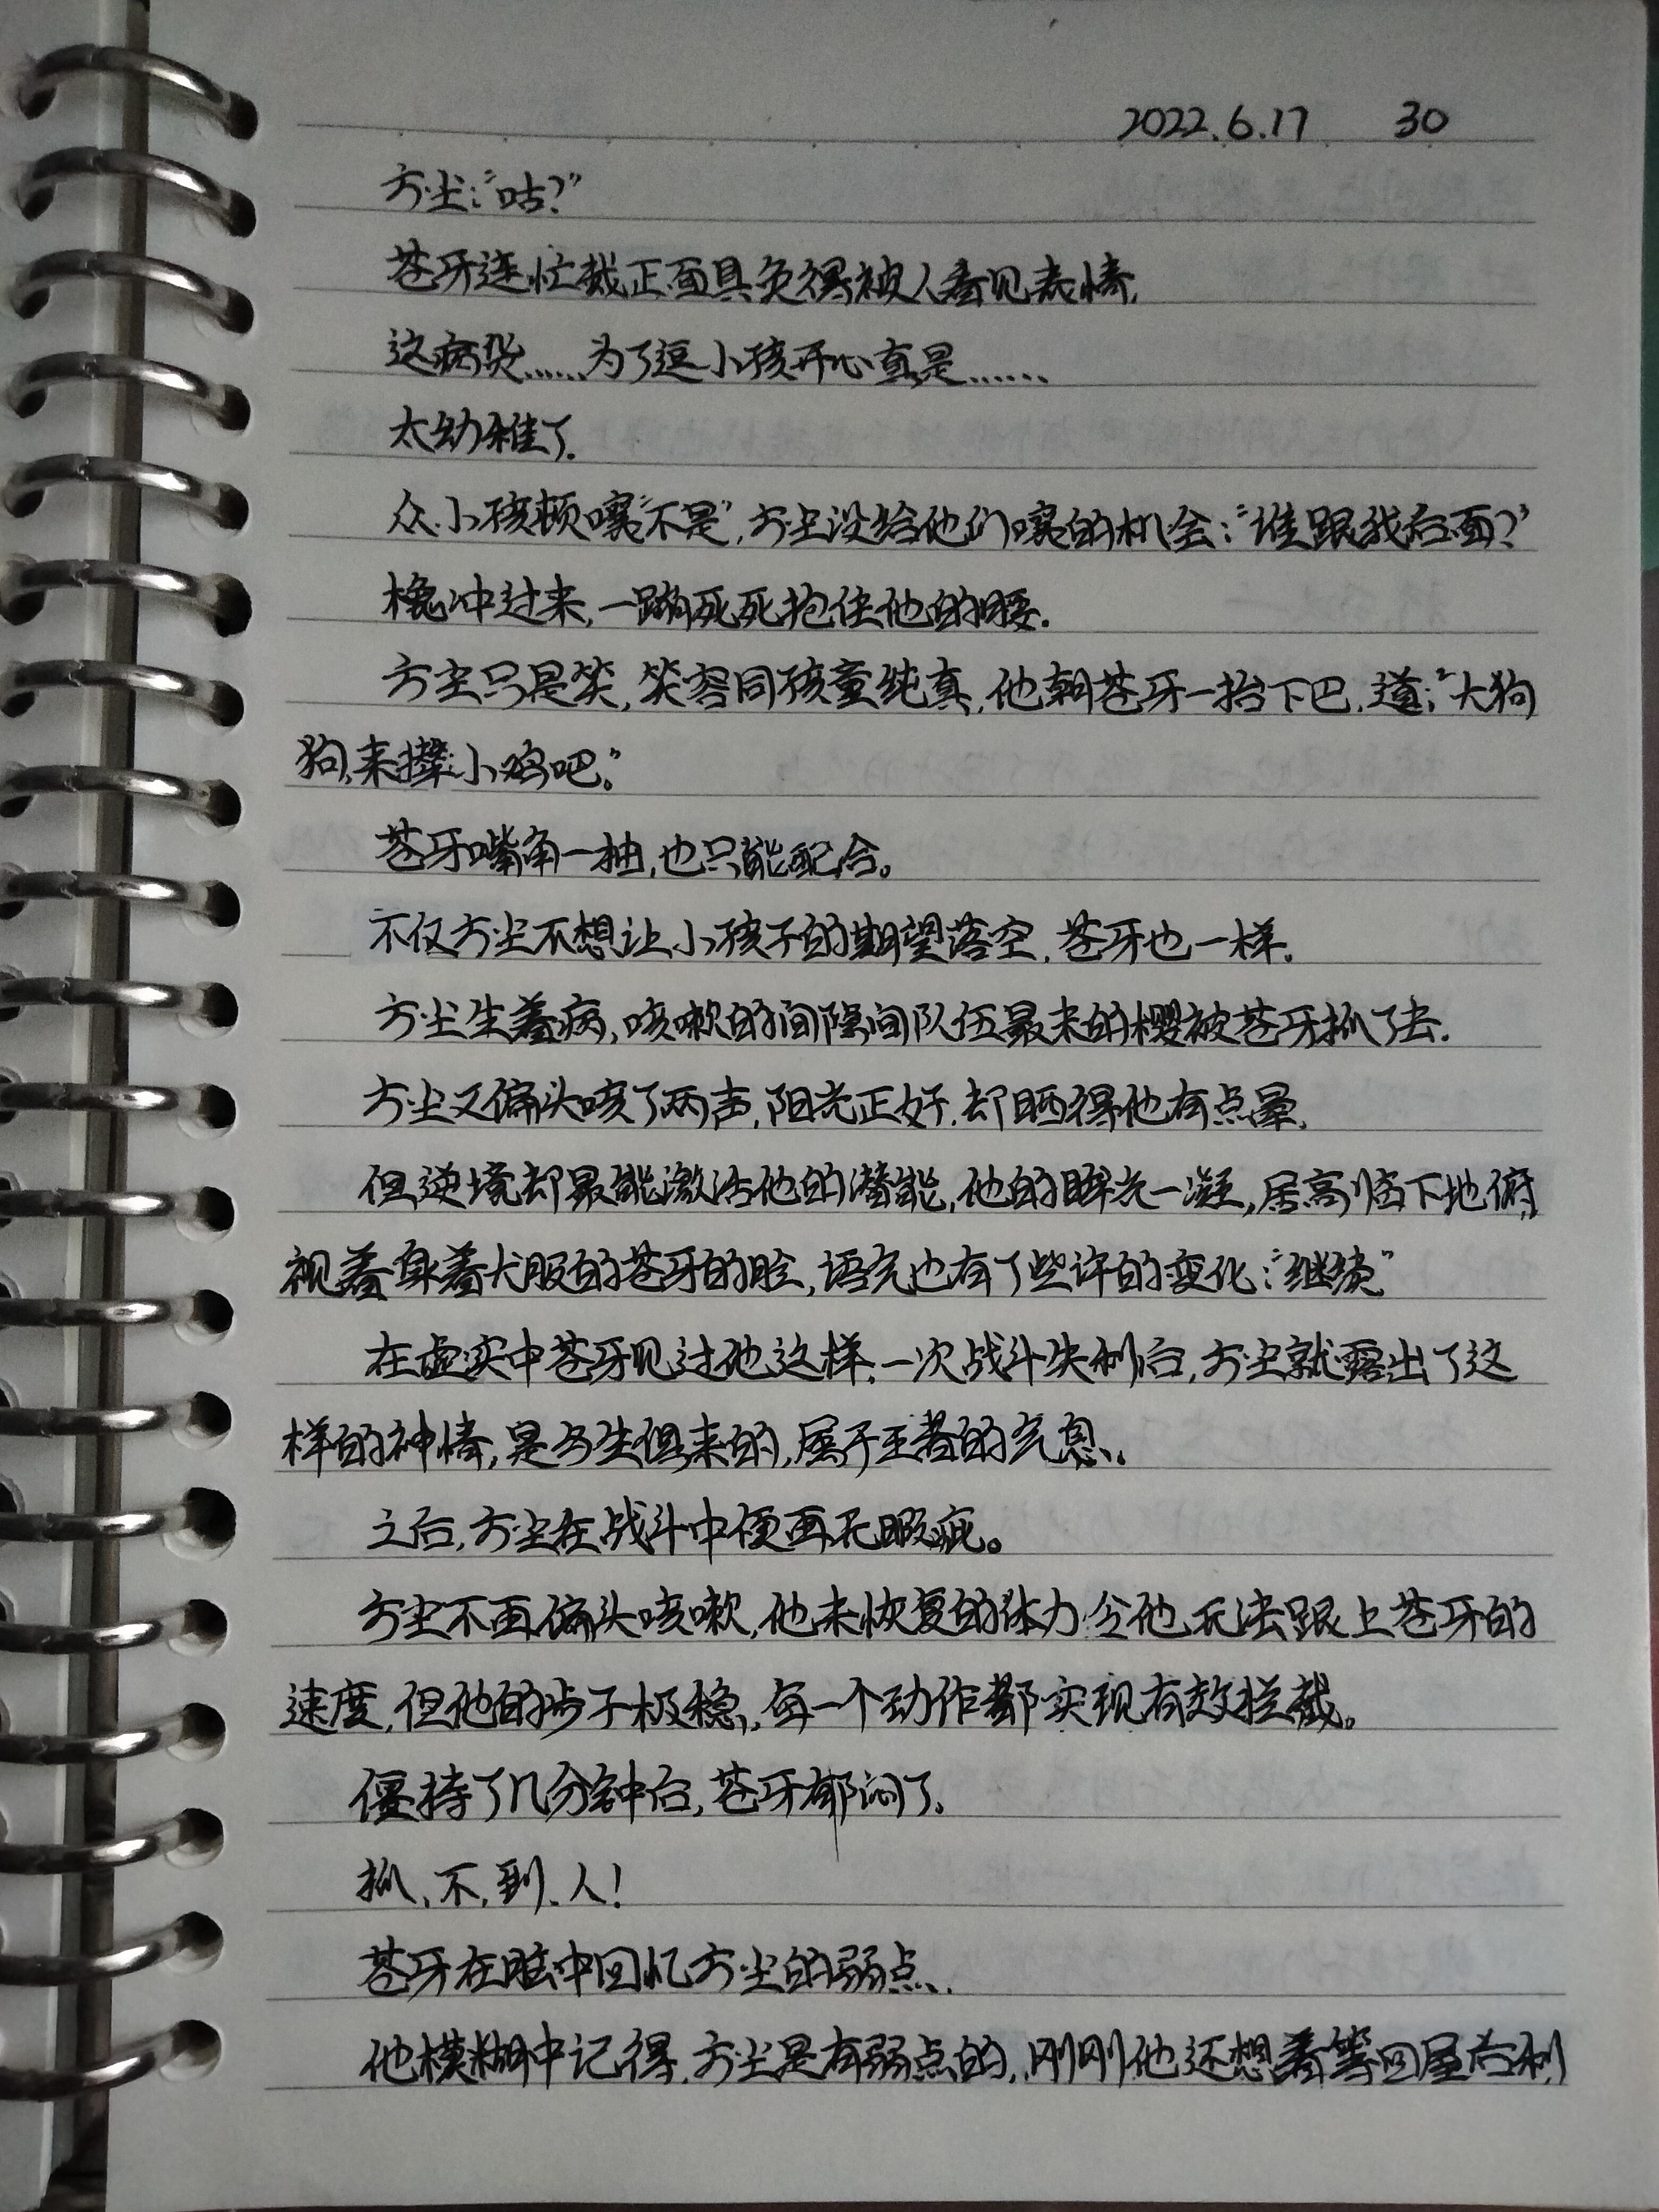 2022.6.17 30
方尘：“咕？”
苍牙连忙戴正面具免得被人看见表情.
这病货……为了逗小孩开心真是……
太幼稚了.
众小孩顿嚷“不是”,方尘没给他们嚷的机会：“谁跟我后面？”
橡冲过来,一蹦死死抱住他的腰.
方尘只是笑,笑容同孩童纯真,他朝苍牙一抬下巴,道：“大狗
狗,来撵小鸡吧。”
苍牙嘴角一抽,也只能配合。
不仅方尘不想让小孩子的期望落空,苍牙也一样.
方尘生着病,咳嗽的间隙间队伍最末的樱被苍牙抓了去.
方尘又偏头咳了两声,阳光正好,却晒得他有点晕.
但逆境却最能激活他的潜能,他的眸光一凝,居高临下地俯
视着身着犬服的苍牙的脸,语气也有了些许的变化：“继续”
在虚实中苍牙见过他这样,一次战斗失利后,方尘就露出了这
样的神情,是与生俱来的,属于王者的气息.
之后,方尘在战斗中便再无瑕疵。
方尘不再偏头咳嗽,他未恢复的体力令他无法跟上苍牙的
速度,但他的步子极稳,每一个动作都实现有效拦截。
僵持了几分钟后,苍牙郁闷了.
抓.不.到.人!
苍牙在脑中回忆方尘的弱点.
他模糊中记得,方尘是有弱点的,刚刚他还想着等回屋后利